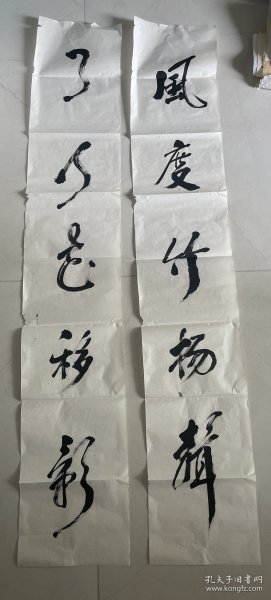 風度竹扬聲
月行花移影
孔夫子旧书网
www.kongfz.com